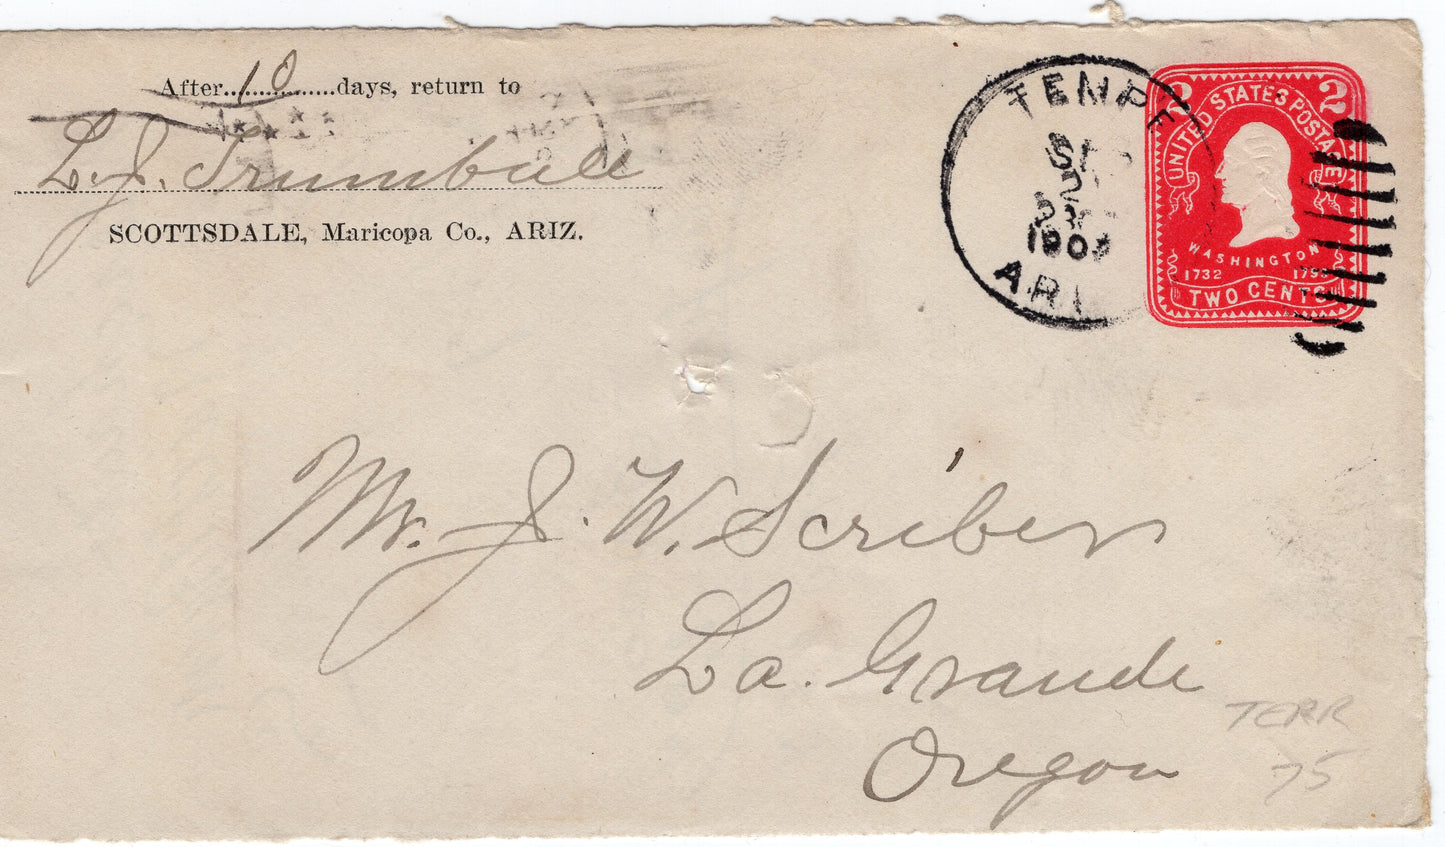 After..10..days, return to
L. J. Trumbull
SCOTTSDALE, Maricopa Co., ARIZ.
TEMPE
ARI
2 2
UNITED STATES POSTAGE
WASHINGTON
1732 1799
TWO CENTS
Mr. J. W. Scriber
La. Grande
Oregon
TERR
75